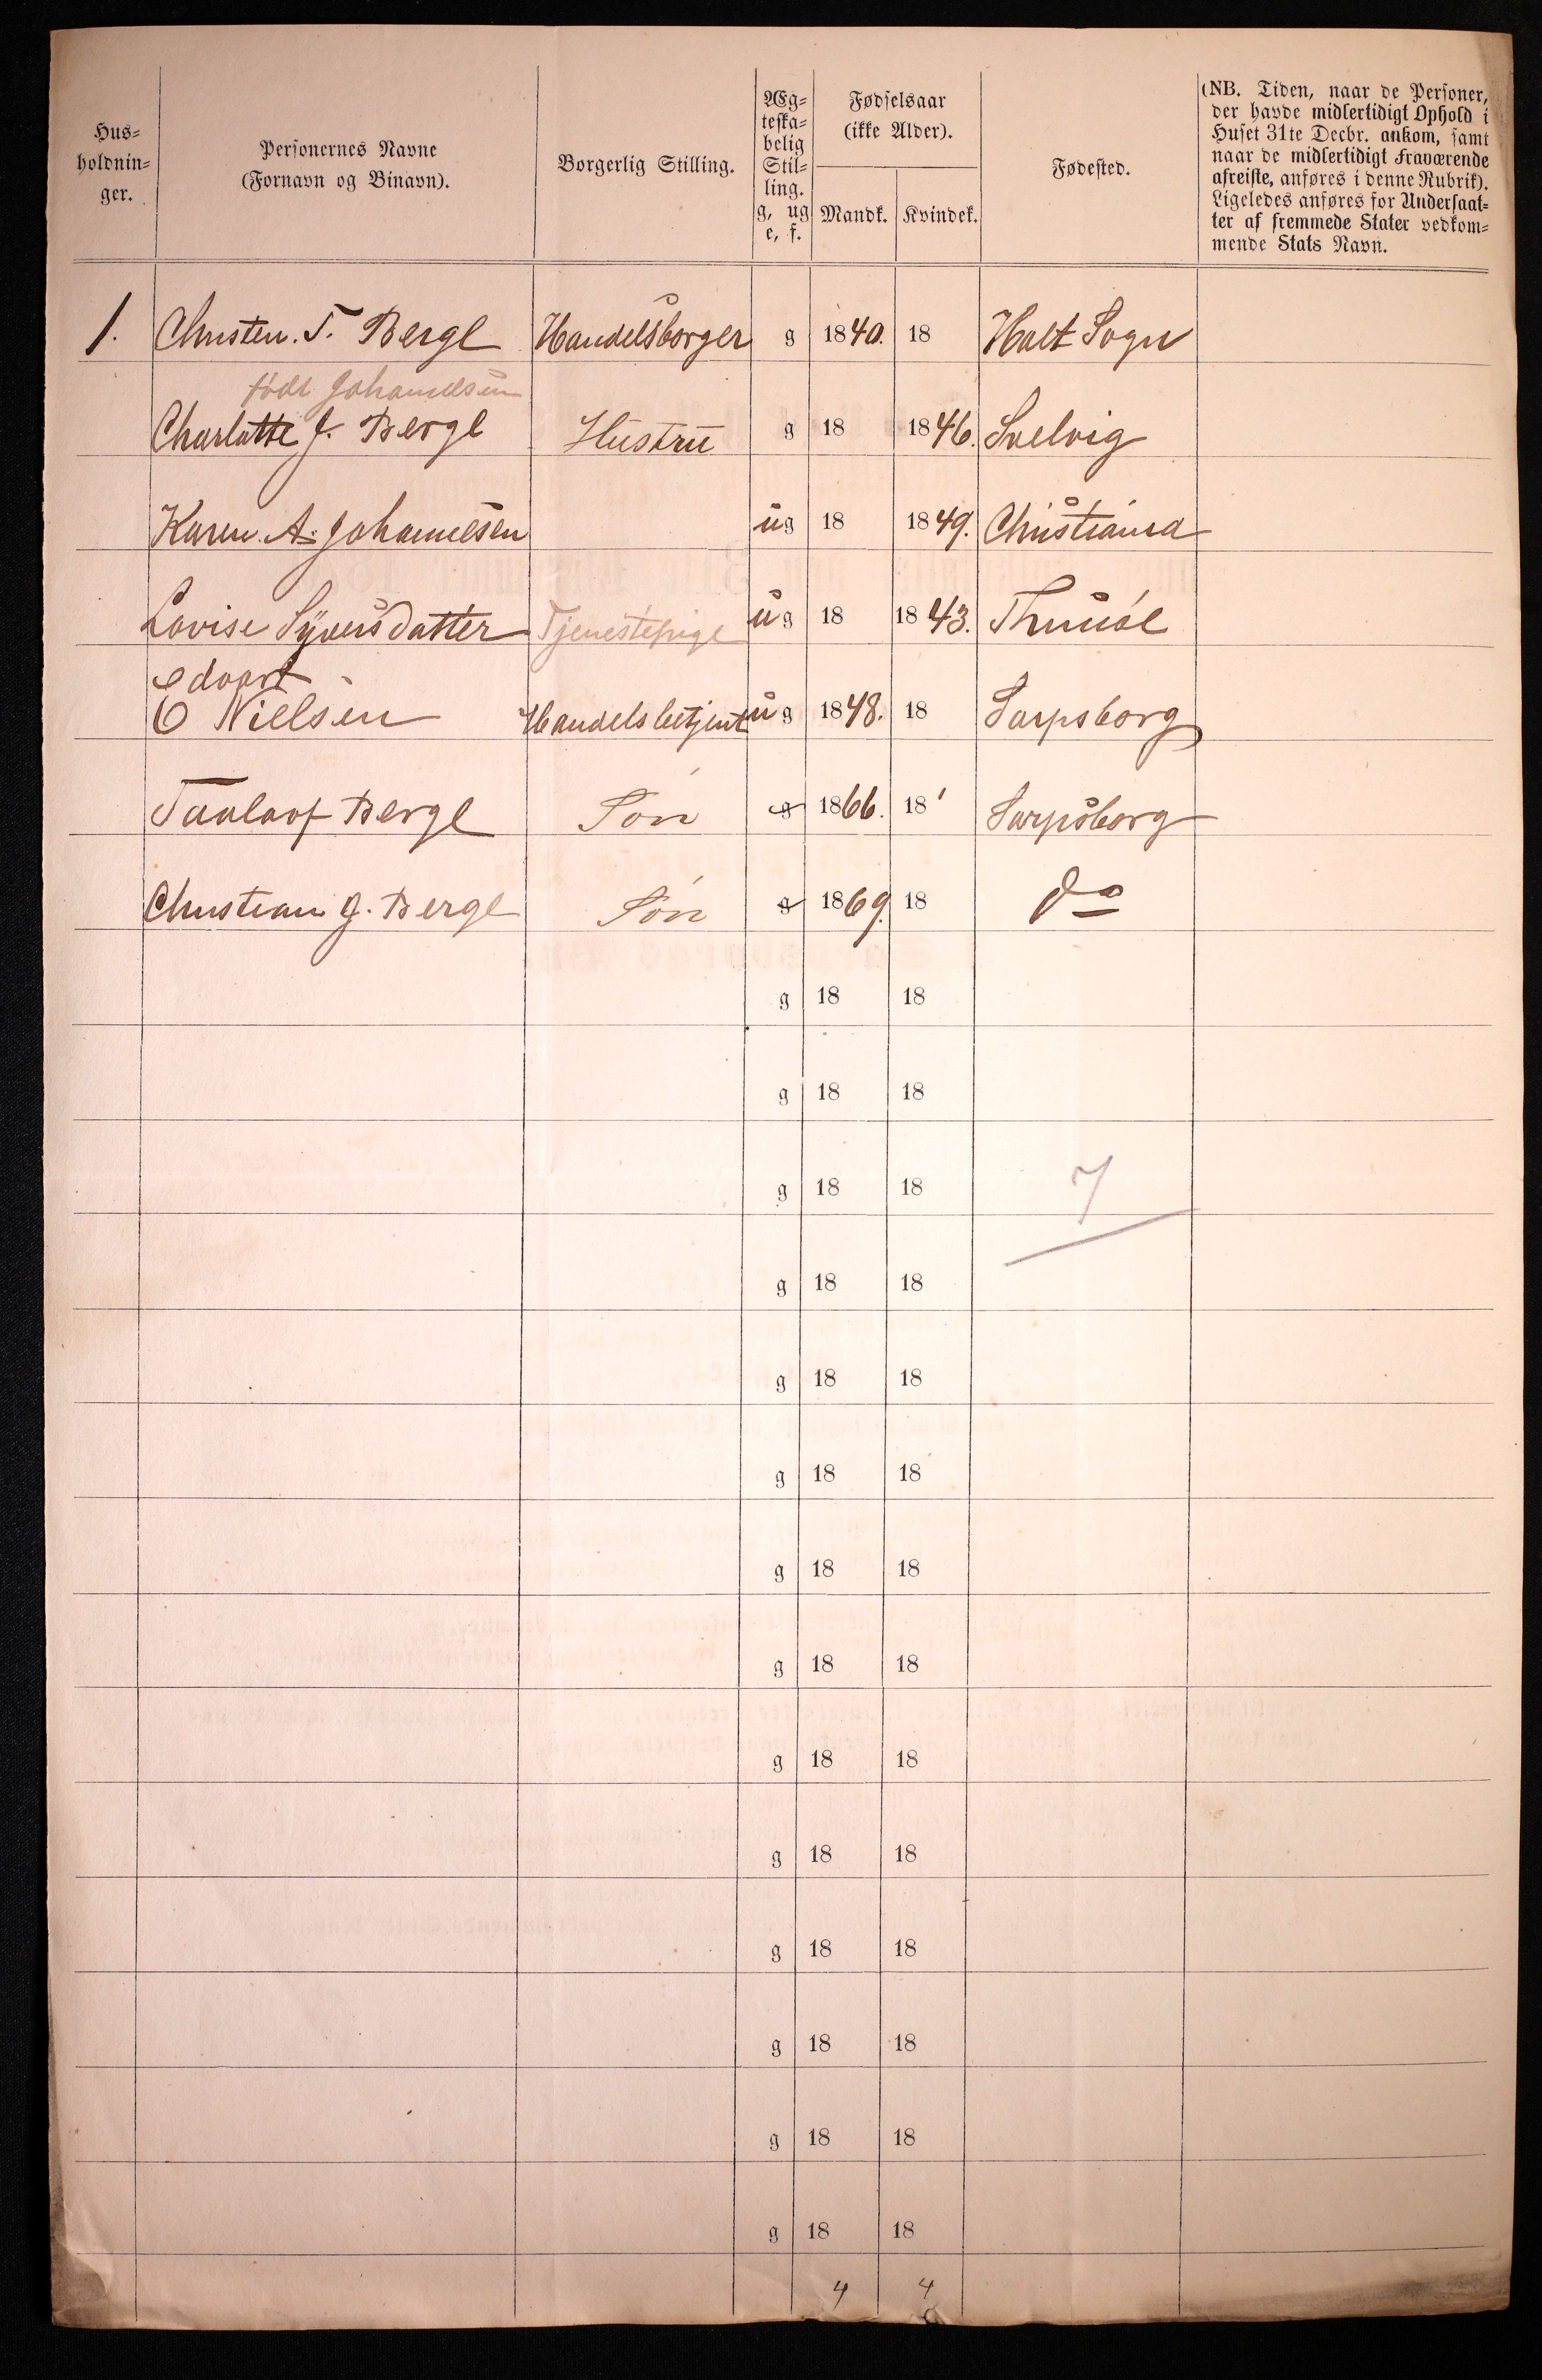 Hus-
holdnin-
ger.
Personernes Navne
(Fornavn og Binavn).
Borgerlig Stilling.
Æg-
teska-
belig
Stil-
ling.
g, ug
e, f.
Fødselsaar
(ikke Alder).
Mandk. Kvindek.
Fødested.
(NB. Tiden, naar de Personer,
der havde midlertidigt Ophold i
Huset 31te Decbr. ankom, samt
naar de midlertidigt Fraværende
afreiste, anføres i denne Rubrik).
Ligeledes anføres for Undersaat-
ter af fremmede Stater vedkom-
mende Stats Navn.
1. Christen. T. Berge Handelsborger g 1840. 18 Holt Sogn
født Johannesen
Charlotte J. Berge Hustru g 18 1846. Svelvig
Karen. A. Johannesen ug 18 1849. Christiania
Lovise Syversdatter Tjenestepige ug 18 1843. Thunøe
Edvart
E Nielsen Handelsbetjent ug 1848. 18 Sarpsborg
Taalaof Berge Søn g 1866. 18 Sarpsborg
Christian J. Berge Søn g 1869. 18 do
g 18 18
g 18 18
g 18 18 7
g 18 18
g 18 18
g 18 18
g 18 18
g 18 18
g 18 18
g 18 18
g 18 18
g 18 18
g 18 18
g 18 18
4 4